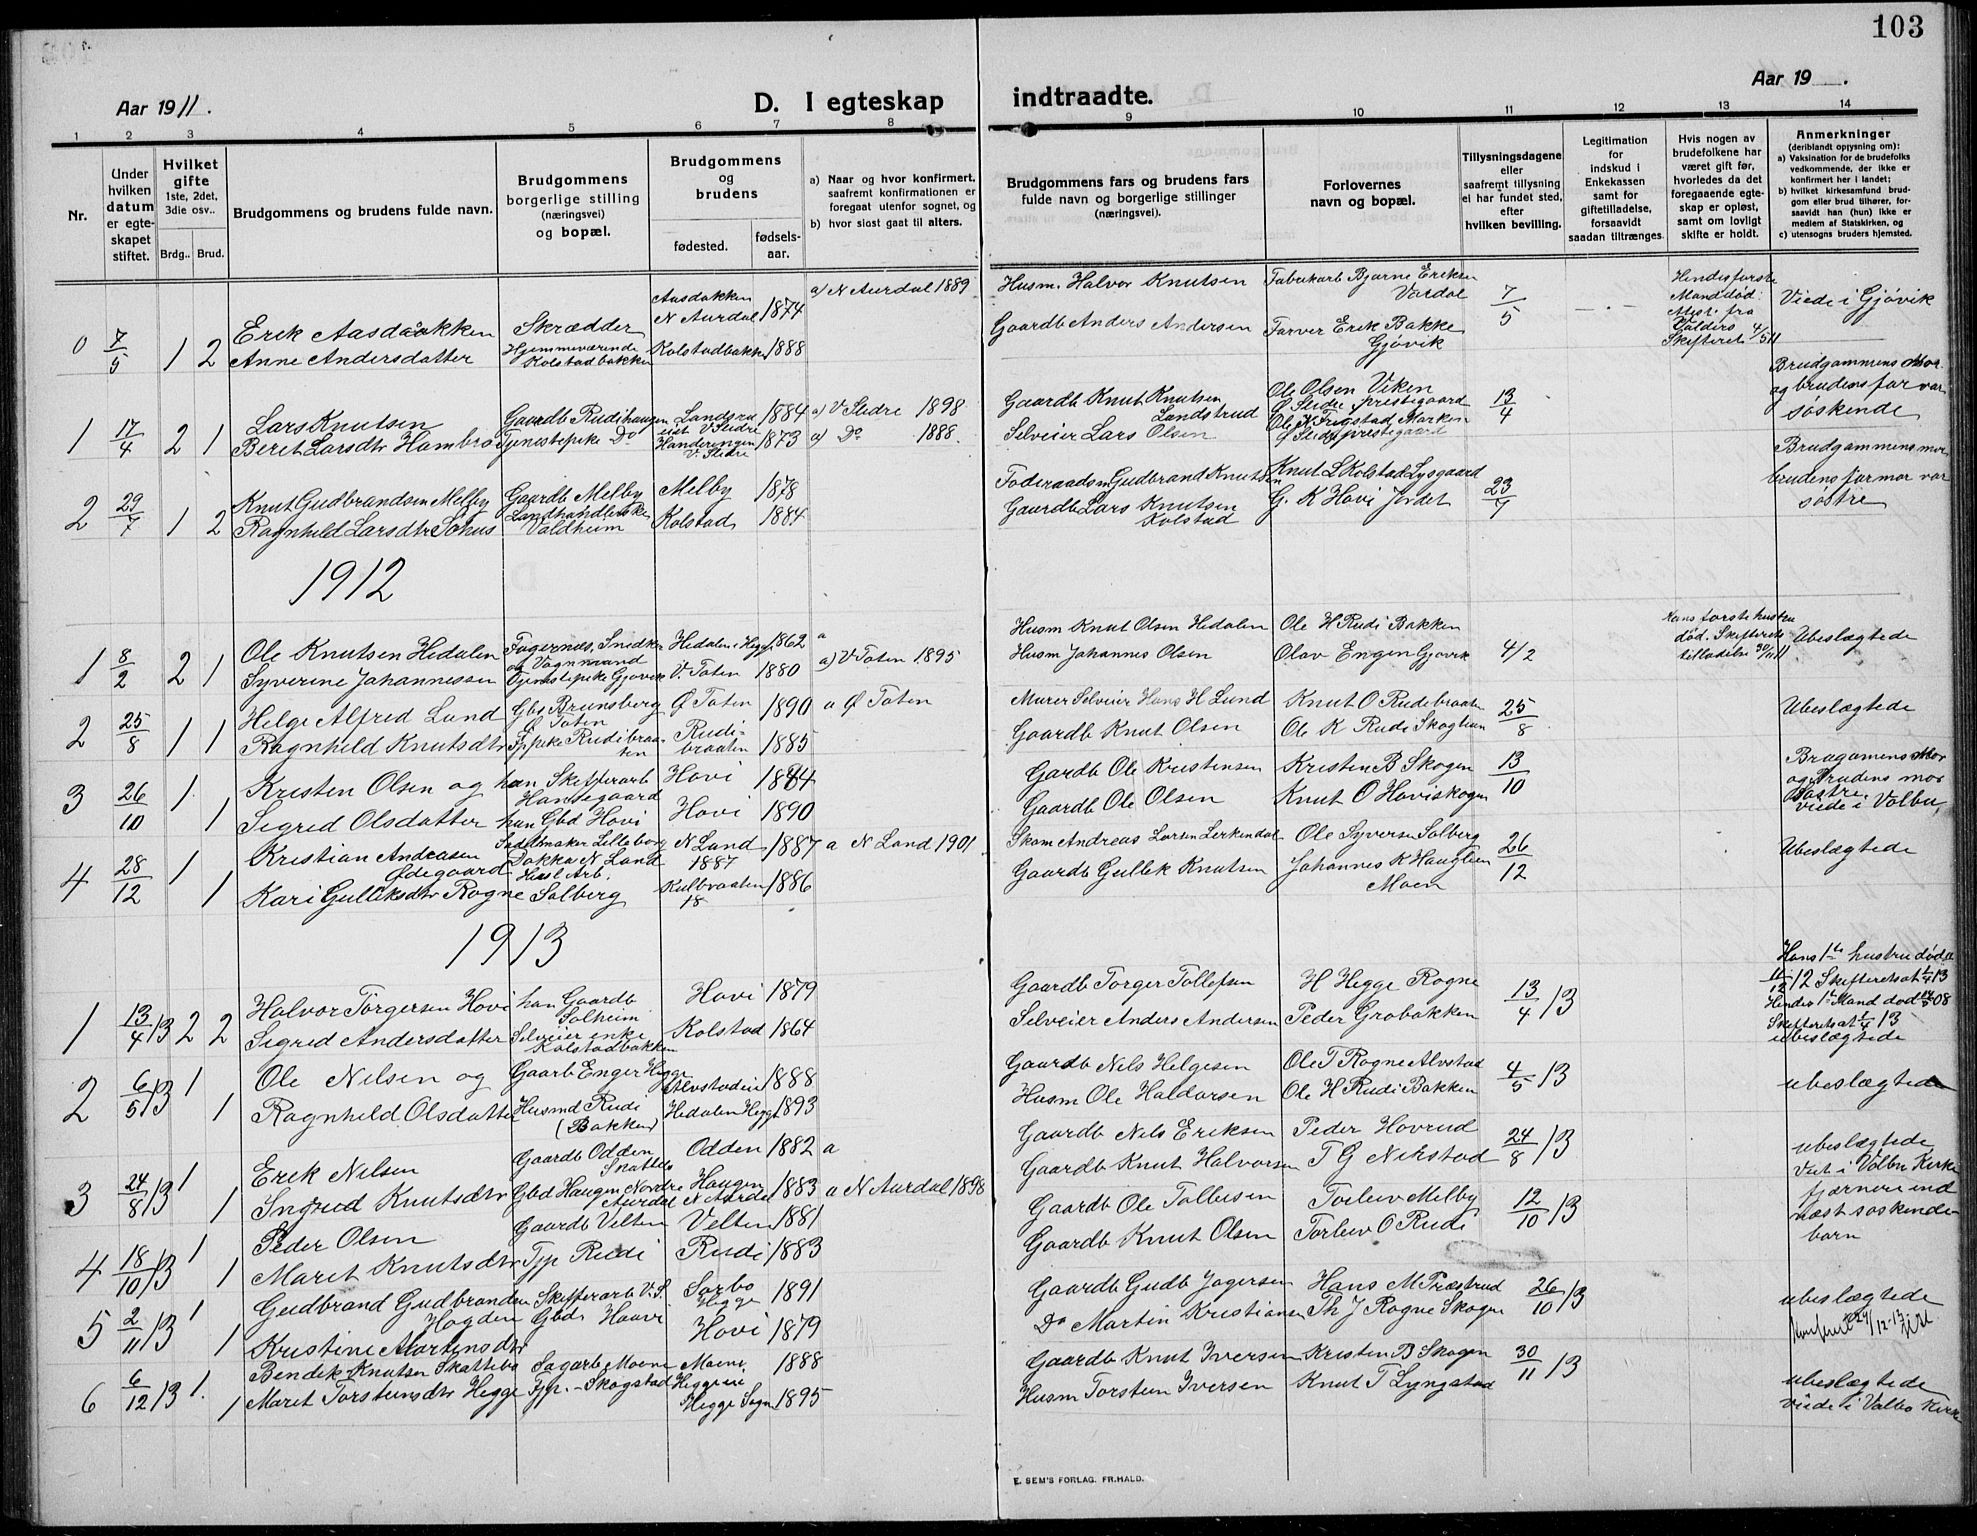 103
Aar 1911.
D. I egteskap
indtraadte.
Aar 19 .
1 2 3 4 5 6 7 8
9 10 11 12 13 14
Nr.
Under hvilken datum er egteskapet stiftet.
Hvilket gifte 1ste, 2det, 3die osv..
Brdg.. Brud.
Brudgommens og brudens fulde navn.
Brudgommens borgerlige stilling (næringsvei) og bopæl.
Brudgommens og brudens
fødested. fødselsaar.
a) Naar og hvor konfirmert, saafremt konfirmationen er foregaat utenfor sognet, og
b) hvor sidst gaat til alters.
Brudgommens fars og brudens fars fulde navn og borgerlige stillinger (næringsvei).
Forlovernes navn og bopæl.
Tillysningsdagene eller saafremt tillysning ei har fundet sted, efter hvilken bevilling.
Legitimation for indskud i Enkekassen samt for giftetilladelse, forsaavidt saadan tiltrænges.
Hvis nogen av brudefolkene har været gift før, hvorledes da det foregaaende egteskap er opløst, samt om lovligt skifte er holdt.
Anmerkninger (deriblandt opjysning om):
a) Vaksination for de brudefolks vedkommende, der ikke er konfirmert her i landet;
b) hvilket kirkesamfund brudgom eller brud tilhører, forsaavidt han (hun) ikke er medlem af Statskirken, og
c) utensogns bruders hjemsted.
0 7/5 1 2 Erik Aasdokken Skrædder Aasdokken N Aurdal 1874 a) N Aurdal 1889 Husm. Halvor Knutsen Fabrikarb Bjarne Eriksen Vardal 7/5 Viede i Gjøvik
Anne Andersdatter Hjemmeværende Kolstadbakken Kolstadbakk 1888 Gaardb Anders Andersen Farver Erik Bakke Gjøvik
Hendes første Mand død.
Skifteret 4/5 11
1 17/4 2 1 Lars Knutsen Gaardb Rudihaugen 1884 a) V Slidre 1898 Gaardb Knut Knutsen Landstrud Ole Olsen Viken Ø Slidre prestegaard 13/4 Brudgammens Mor og brudens far var søskende
Beret Larsdtr Hambro Tjenestepike Do V. Slidre 1873 a) Do 1888. Selveier Lars Olsen
2 29/7 1 2 Knut Gudbrandsen Melby Gaardb Melby Melby 1878 Foderaadsm Gudbrand Knutsen Knut L Kolstad Lysgaard 23/7 Brudgammens mor brudens farmor var søstre
Ragnhild Larsdtr Sohus Landhandlerske Valdheim Kolstad 1884 Gaardb Lars Knutsen Kolstad G. K Hovi Jordet
1912
1 8/2 2 1 Ole Knutsen Hedalen Fagernes, Snedker og Vognmand Hedalen i Hegge 1862 a Husm Knut Olsen Hedalen Ole H Rudi Bakken 4/2 Hans første hustru død. Skifterets tilladelse 30/11 11 Ubeslægtede
Syverine Johannessen Tjenestepike Gjøvik V. Toten 1880 a) V Toten 1895 Husm Johannes Olsen Olav Engen Gjøvik
2 25/8 1 1 Helge Alfred Lund Gbs Brunsberg Ø Toten Ø Toten 1890 a Ø Toten Murer Selveier Hans H Lund Knut O Rudibraaten 25/8 Ubeslægtede
Ragnhild Knutsdtr Tjpike Rudibraaten Rudibraaten 1885 Gaardb Knut Olsen Ole K Rudi Skoglien
3 26/10 1 1 Kristen Olsen og han Skifferarb Hansegaard Hovi 1884 Gardb Ole Kristensen Kristen B Skogen 13/10 Brugamens Mor og Brudens mor Søstre. viede i Volbu,
Sigrid Olsdatter hun Gbd Hovi Hovi 1890 Gaardb Ole Olsen Knut O Haviskogen
4 28/12 1 1 Kristian Andreasen Ødegaard Sadelmaker Lilleborg Dokka N Land N Land 1887 1887 a N Land 1901 Skom Andreas Larsen Lerkendal Ole Syversen Solberg 26/12 Ubeslægtede
Kari Gulliksdtr Rogne Husl Arb. Solberg Kulbraaten 18 1886 Gaardb Gullik Knutsen Johannes K Hauglien Moen
1913
1 13/4 13 2 2 Halvor Torgersen Hovi han Gaardb Solheim Hovi 1879 Gaardb Torger Tollefsen H Hegge Rogne 13/4 13 Hans 1te hustru død 11/12 12 Skifteretsat 1/4 13
Sigrid Andersdatter Selveier enke Kolstadbakken Kolstad 1864 Selveier Anders Andersen Peder Grobakken Hendes 1te Mand død 08 Skifteretsat 1/4 13 ubeslægtede
2 6/5 13 1 1 Ole Nilsen og Gaarb Enger Hegge Alvstadeie 1888 Gaardb Nils Helgesen Ole T Rogne Alvstad 4/5 13 ubeslægtede
Ragnhild Olsdatter Husmd Rudi (Bakken) Hedalen Hegge 1893 Husm Ole Haldorsen Ole H Rudi Bakken
3 24/8 13 1 1 Erik Nilsen Gaardb Odden Odden 1882 a Gaardb Nils Eriksen Peder Hovrud 24/8 13 ubeslægtede Viet i Volbu Kirke
Ingrid Knutsdtr Gbd Haugen Nordre Aurdal Haugen N Aurdal 1883 a N Aurdal 1898 Gaardb Knut Halvorsen T G Nikstad
4 18/10 13 1 1 Peder Olsen Gaardb Velten Velten 1881 Gaardb Ole Tollevsen Torleiv Melby 12/10 13 fjærnere end næst søskendebarn
Marit Knutsdtr Tjp Rudi Rudi 1883 Gaardb Knut Olsen Torleiv O Rudi
5 2/11 13 1 1 Gudbrand Gudbrandsen Hagden Skifferarb V. S. Sorbo Hegge 1891 Gaardb Gudb Jogersen Hans M Præstrud 26/10 13 ubeslægtede
Kristine Martinsdtr Gbd Haavi Hovi 1879 Do Martin Kristiansen Th J Rogne Skogne
6 6/12 13 1. 1 Bendik Knutsen Skattebo Sagarb Moene Moene 1888 Gaardb Knut Iversen Kristen B Skogen 30/11 13 ubeslægtede viede i Volbo Kirke
Marit Torsteinsdtr Hegge Tjp. - Skogstad Heggeeie Hegge Sogn 1895 Husm Torstein Iversen Knut T Lyngstad
E. SEM'S FORLAG. FR.HALD.